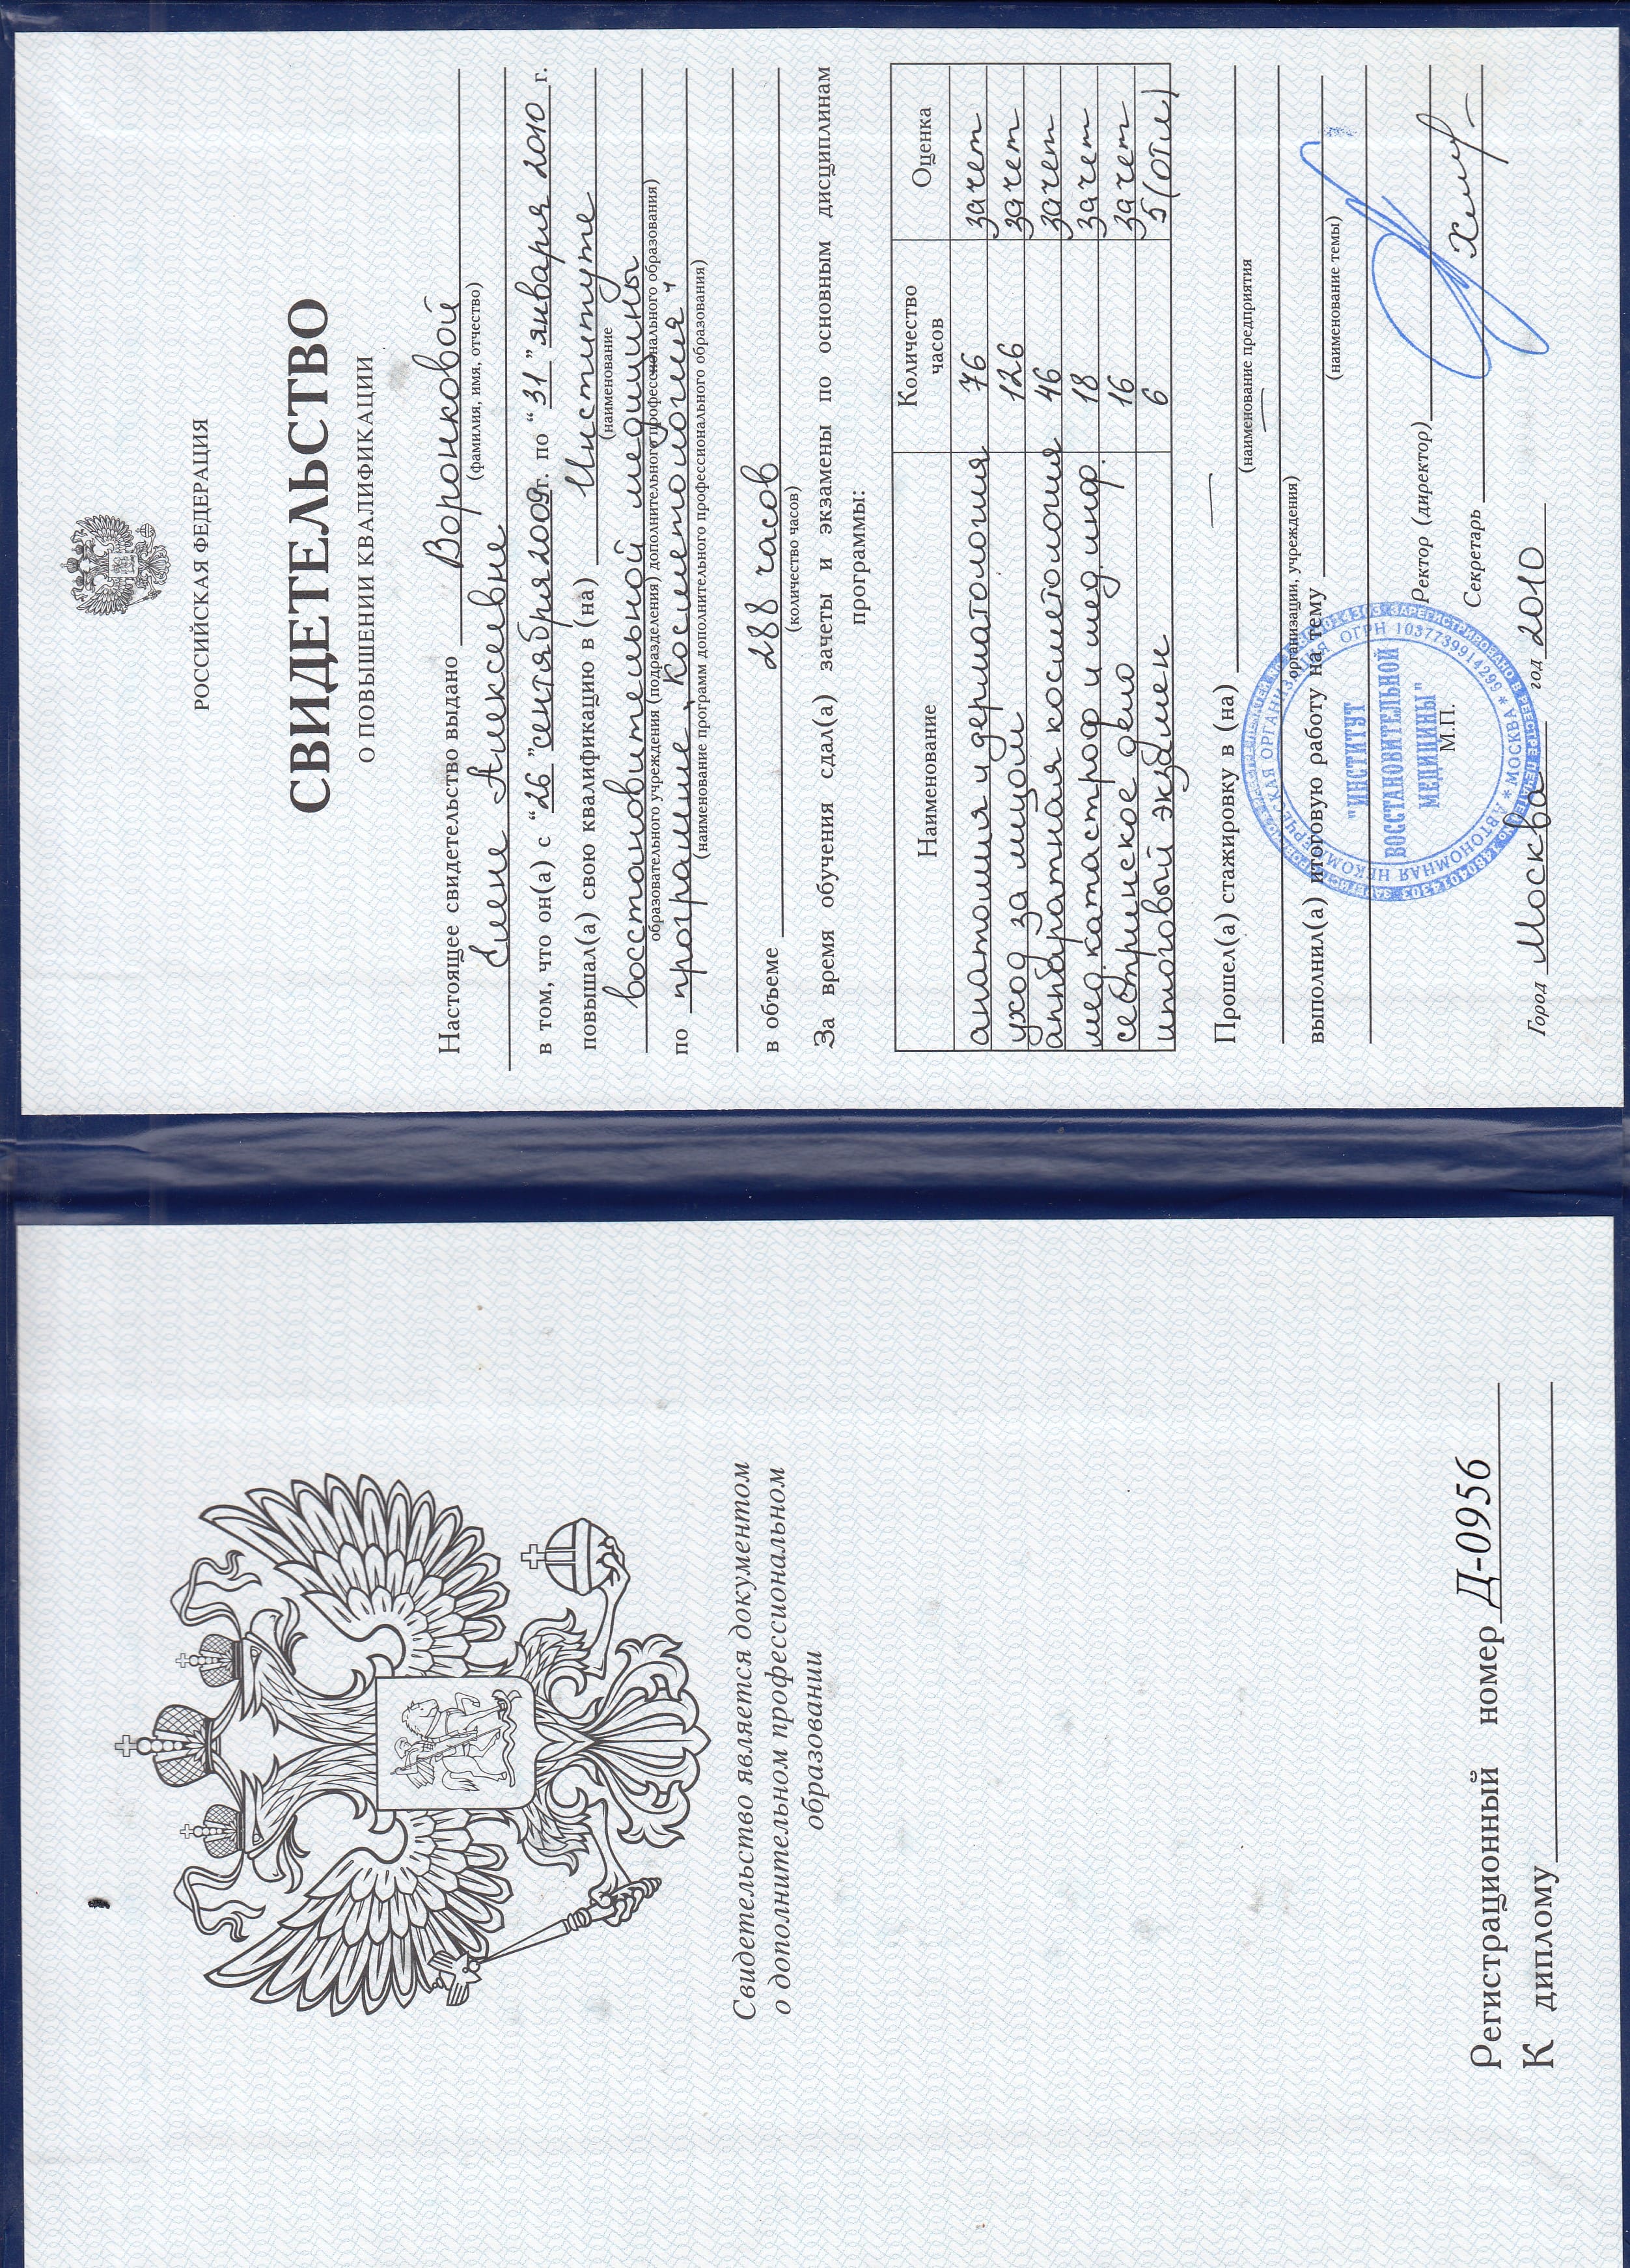 Свидетельство является документом
о дополнительном профессиональном
образовании
Регистрационный номер Д-0956
К диплому
РОССИЙСКАЯ ФЕДЕРАЦИЯ
СВИДЕТЕЛЬСТВО
О ПОВЫШЕНИИ КВАЛИФИКАЦИИ
Настоящее свидетельство выдано Воронковой
(фамилия, имя, отчество)
Елене Алексеевне
в том, что он(а) с “26” сентября 2009г. по “31” января 2010 г.
повышал(а) свою квалификацию в (на) Институте
(наименование
восстановительной медицины
образовательного учреждения (подразделения) дополнительного профессионального образования)
по программе „Косметология"
(наименование программ дополнительного профессионального образования)
в объеме 288 часов
(количество часов)
За время обучения сдал(а) зачеты и экзамены по основным дисциплинам
программы:
Наименование Количество часов Оценка
анатомия и дерматология 76 зачет
уход за лицом 126 зачет
аппаратная косметология 46 зачет
мед. катастроф и мед. инф. 18 зачет
сестринское дело 16 зачет
итоговый экзамен 6 5 (отл)
Прошел(а) стажировку в (на) —
(наименование предприятия
—
организации, учреждения)
выполнил(а) итоговую работу на тему
(наименование темы)
АВТОНОМНАЯ НЕКОММЕРЧЕСКАЯ ОРГАНИЗАЦИЯ ОГРН 1037739914299 * МОСКВА *
"ИНСТИТУТ
ВОССТАНОВИТЕЛЬНОЙ
МЕДИЦИНЫ"
М.П.
Ректор (директор)
Секретарь
Город Москва год 2010